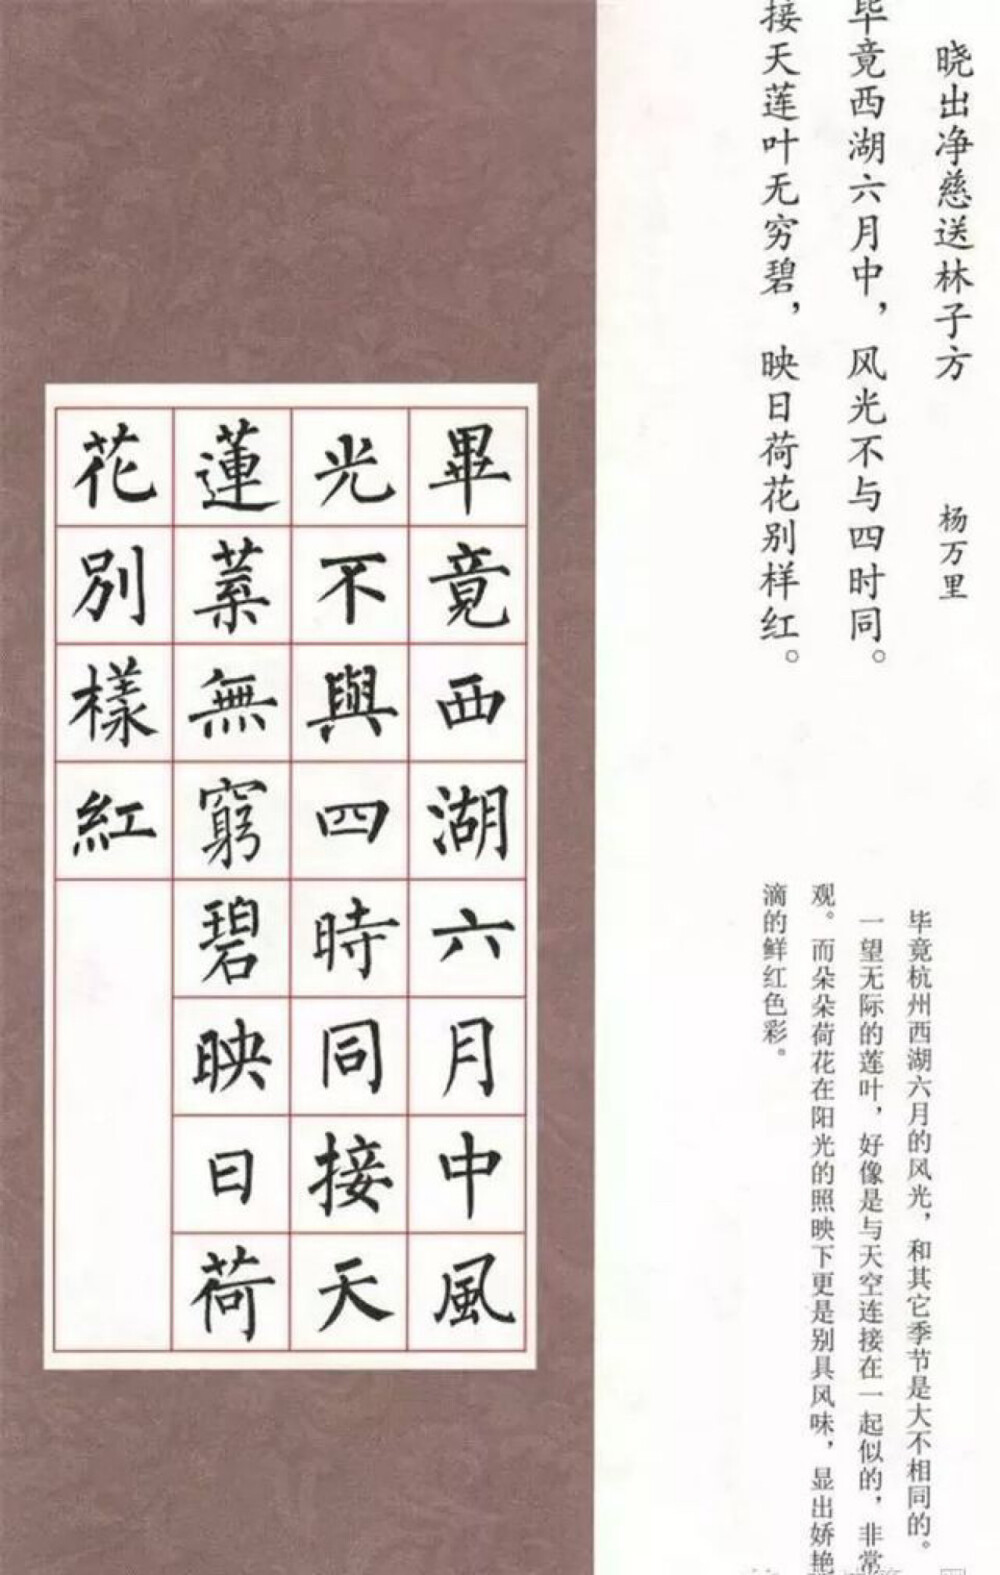 晓出净慈送林子方 杨万里
毕竟西湖六月中，风光不与四时同。
接天莲叶无穷碧，映日荷花别样红。
毕竟杭州西湖六月的风光，和其它季节是大不相同的。
一望无际的莲叶，好像是与天空连接在一起似的，非常
观。而朵朵荷花在阳光的照映下更是别具风味，显出娇艳
滴的鲜红色彩。
畢竟西湖六月中風
光不與四時同接天
蓮葉無窮碧映日荷
花別樣紅